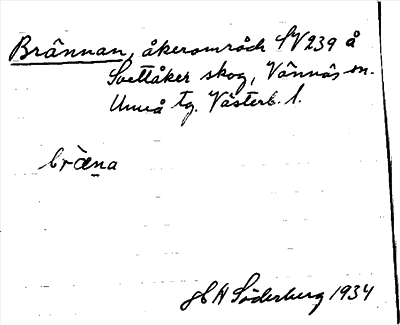 Brännan, åkerområde SV 239 å
Svettåker skog, Vännäs sn.
Umeå tg. Västerb. l.
bræ̀na
H Söderberg 1934